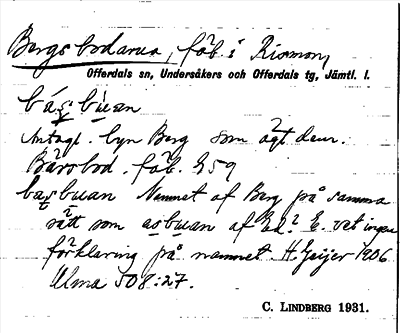 Bergsbodarna, fäb. i Rismon,
Offerdals sn, Undersåkers och Offerdals tg, Jämtl. l.
bás̱bu̇an
Antagl. byn Berg som ägt dem.
Bärsbod. fäb. G59
bas̱buan Namnet af Berg på samma
sätt som as̱buan af Ed? E. vet ingen
förklaring på namnet. H. Geijer 1906
Ulma 508:27.
C. LINDBERG 1931.